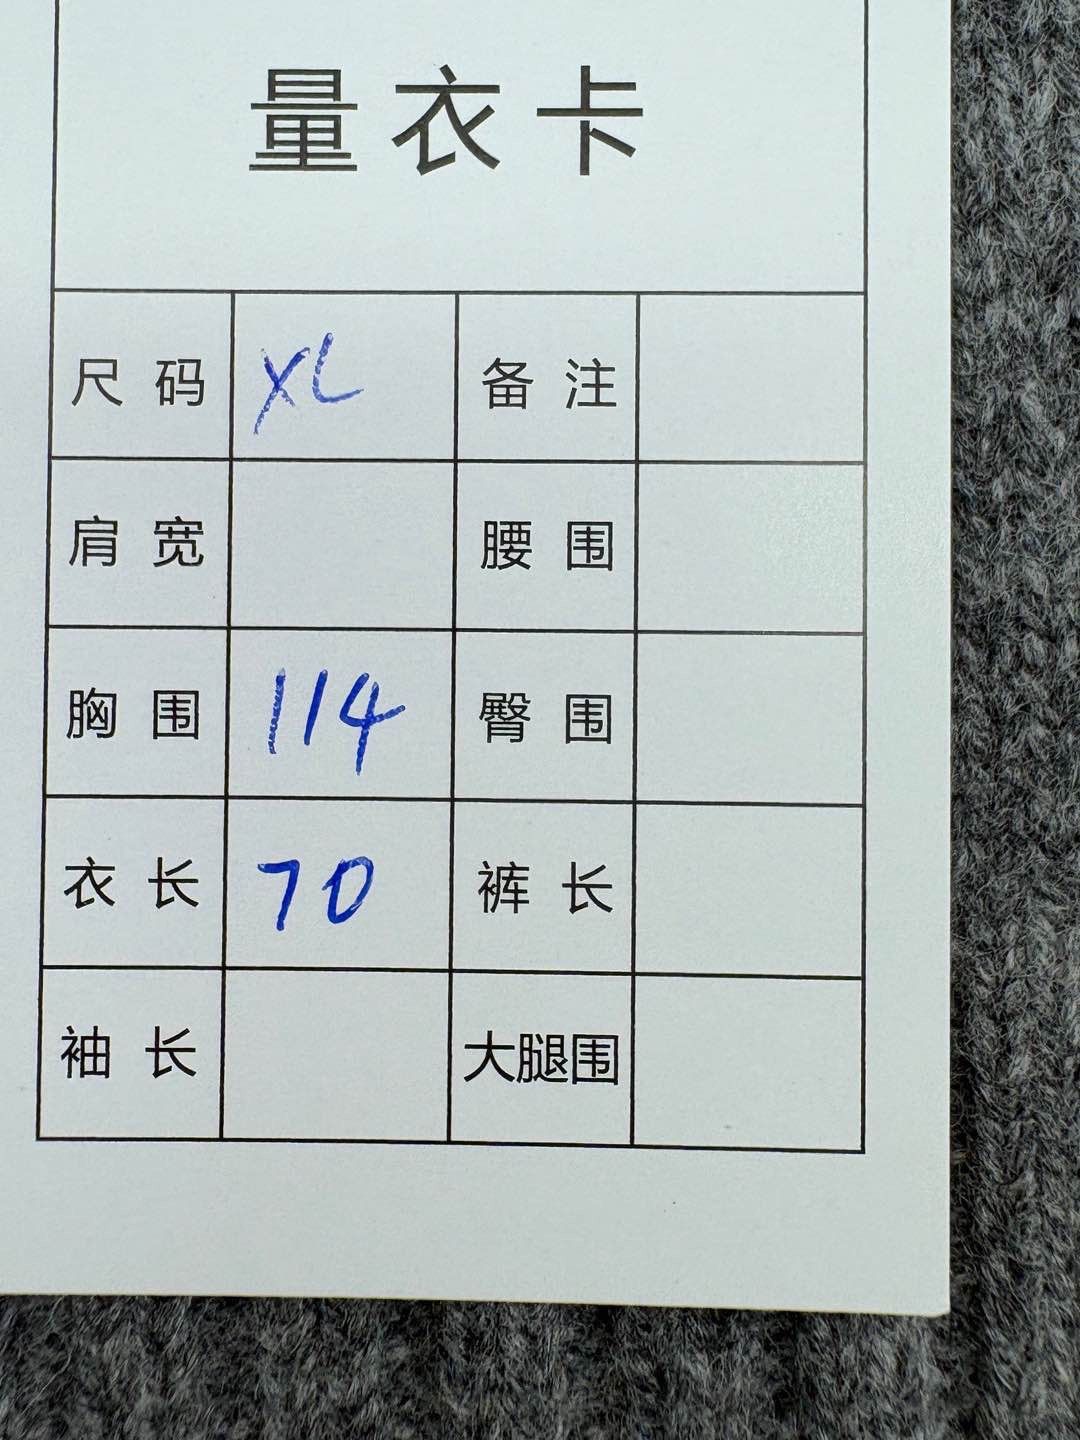 量衣卡
尺码 XL 备注
肩宽 腰围
胸围 114 臀围
衣长 70 裤长
袖长 大腿围